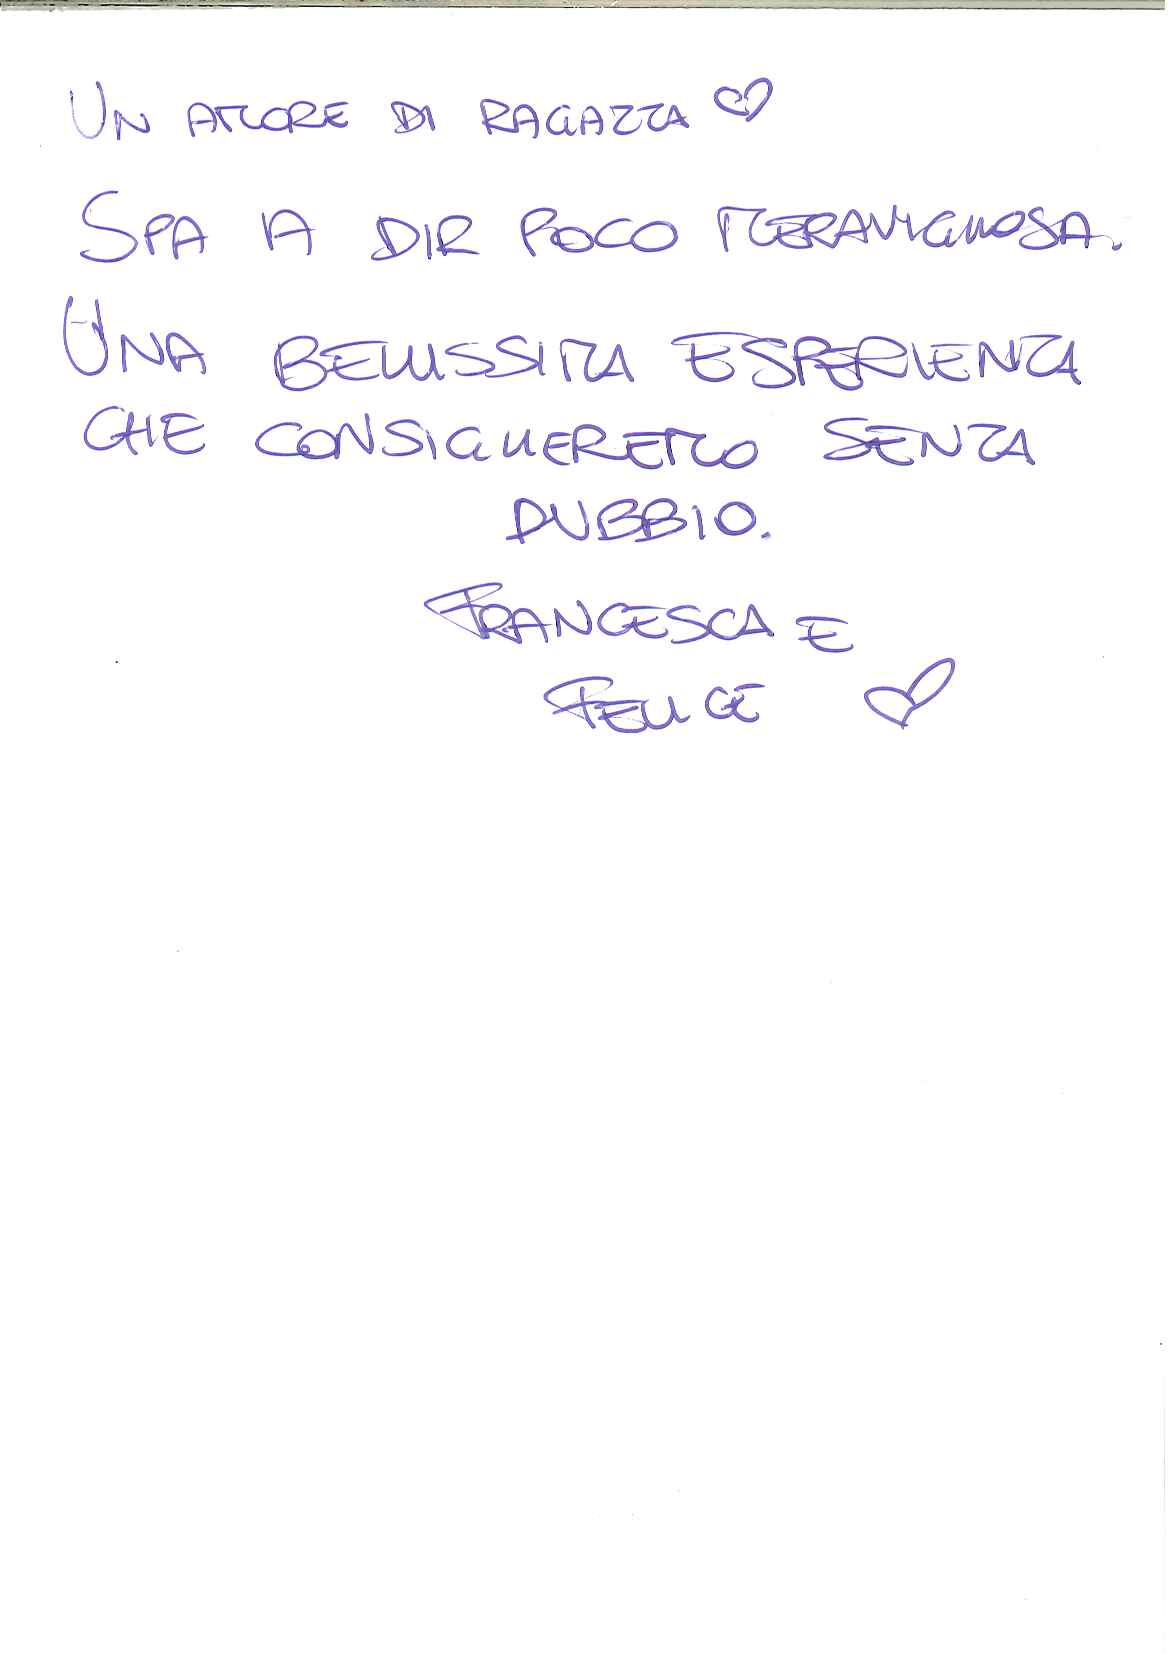 UN AMORE DI RAGAZZA ♡
SPA A DIR POCO MERAVIGLIOSA.
UNA BELLISSIMA ESPERIENZA
CHE CONSIGLIEREMO SENZA
DUBBIO.
FRANCESCA E
FELICE ♡